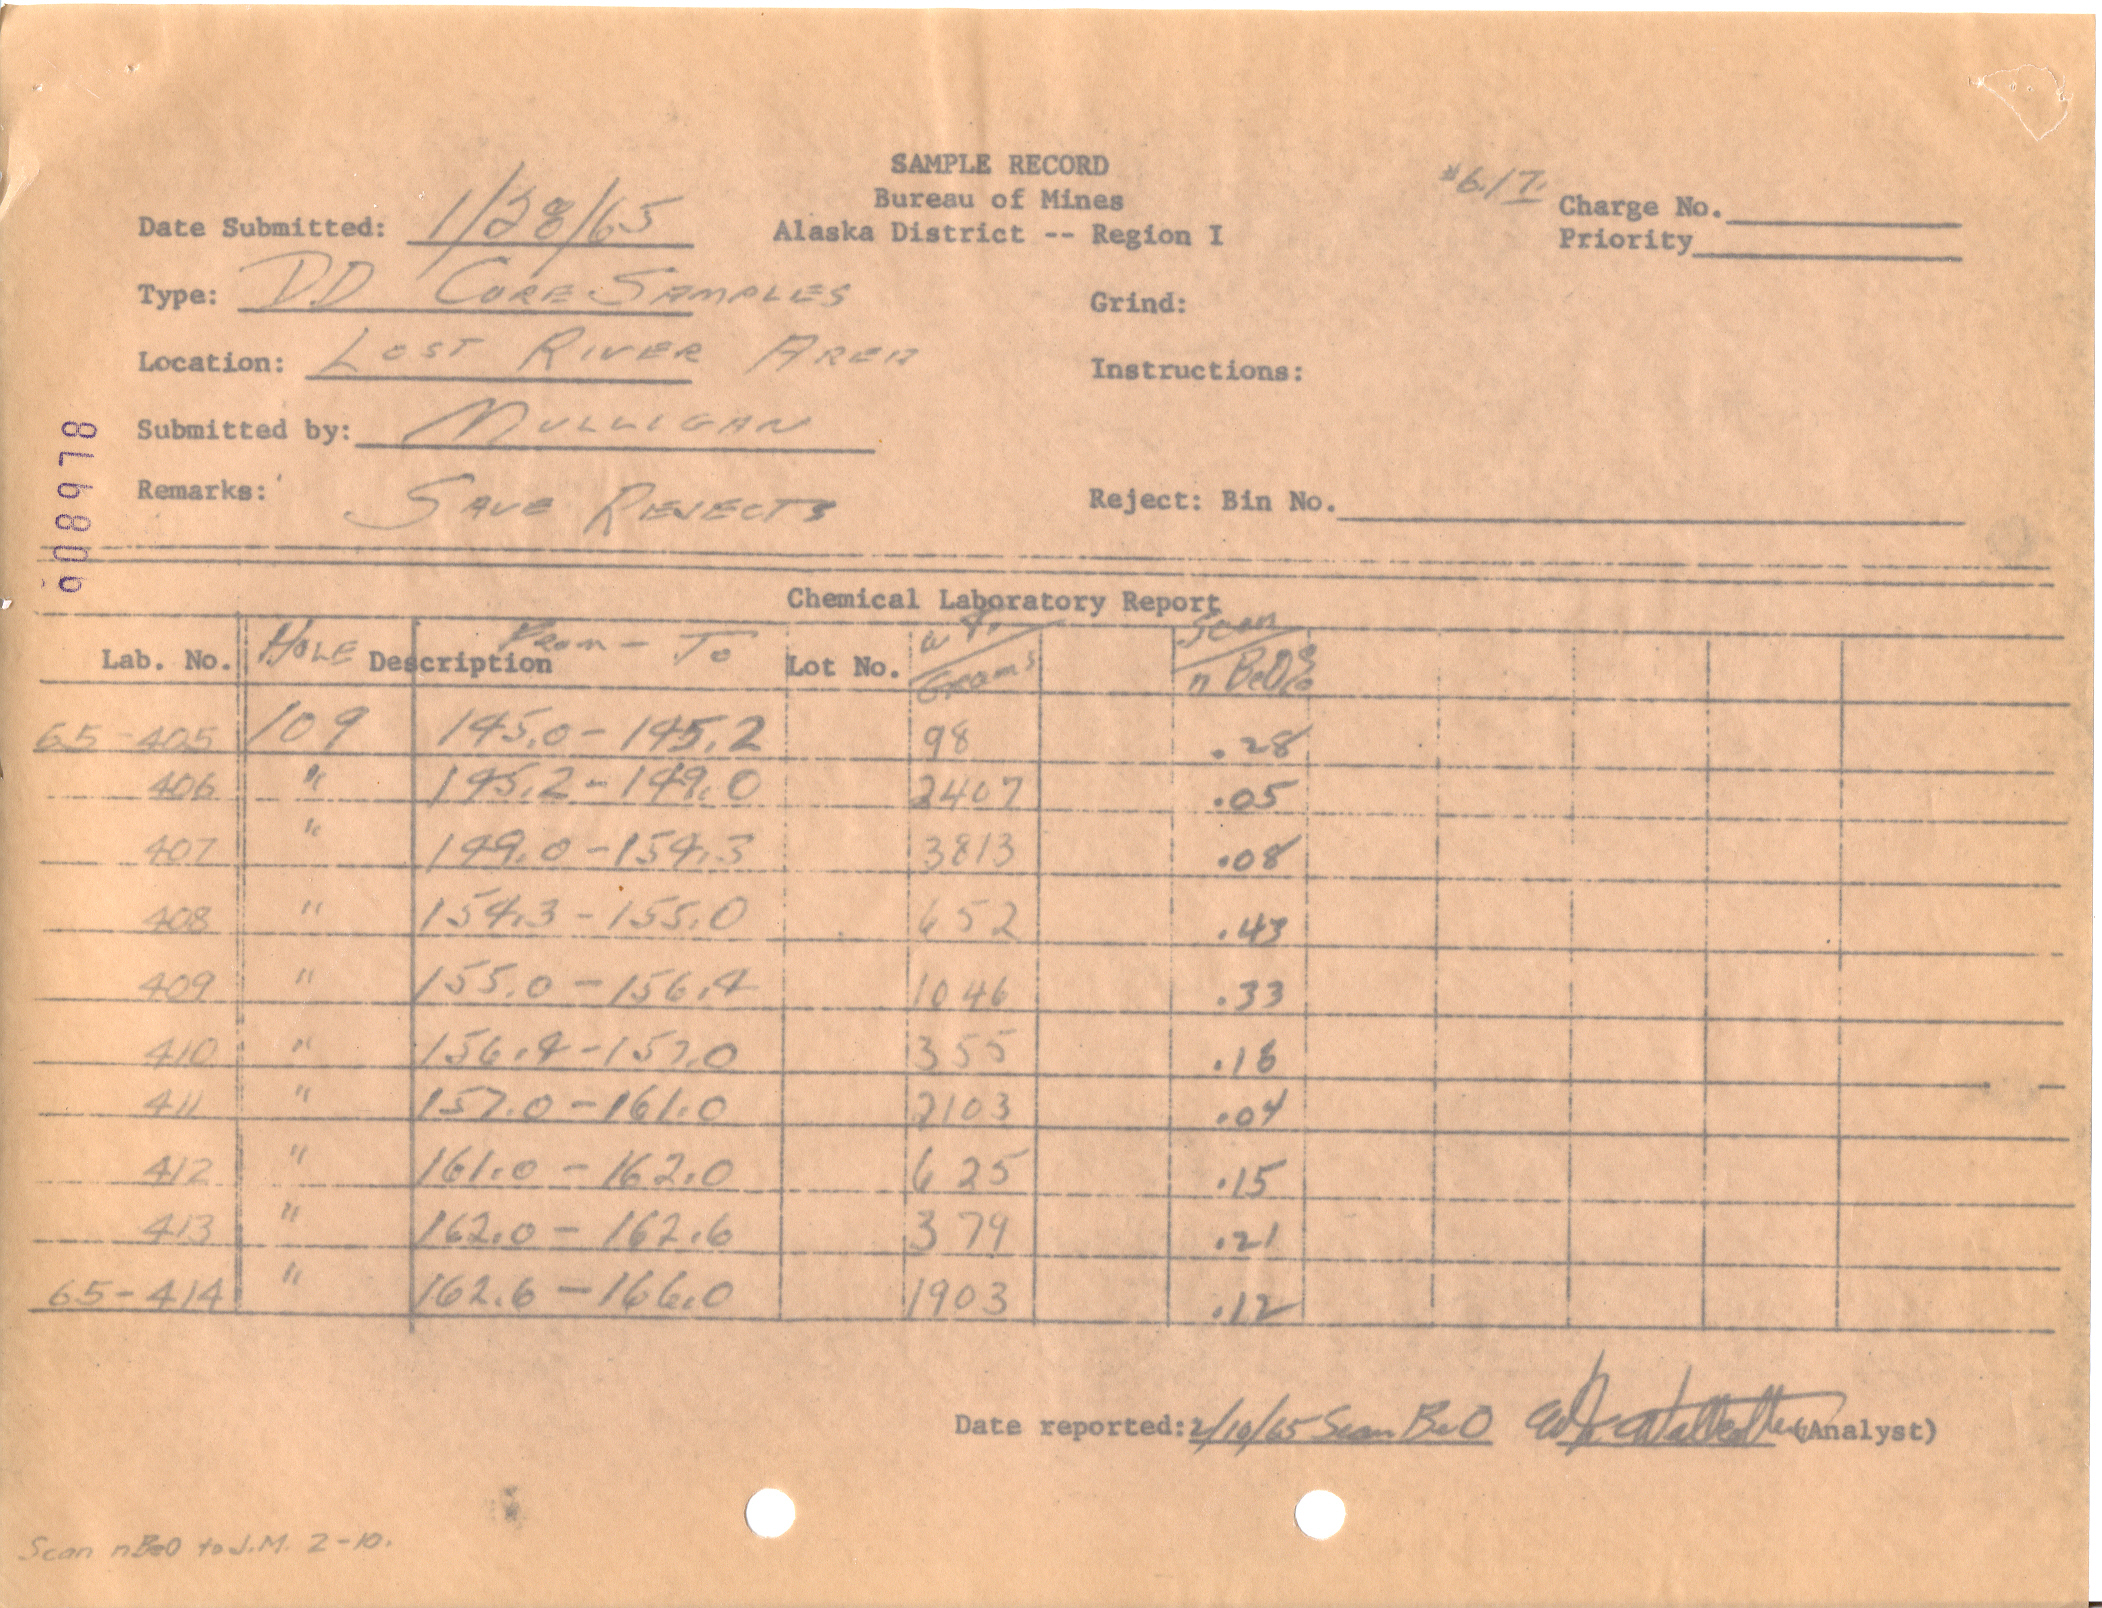 SAMPLE RECORD
Bureau of Mines
Alaska District -- Region I
Date Submitted: 1/28/65
Charge No.
Priority
Type: DD CORE SAMPLES
Grind:
Location: LOST RIVER AREA
Instructions:
Submitted by: MULLIGAN
Remarks: SAVE REJECTS
Reject: Bin No.
Chemical Laboratory Report
Lab. No. HOLE Description From - To Lot No. WT. / Grams Scan / n BeO %
65-405 109 145.0-145.2 98 .28
406 " 145.2-149.0 2407 .05
407 " 149.0-154.3 3813 .08
408 " 154.3-155.0 652 .43
409 " 155.0-156.4 1046 .33
410 " 156.4-157.0 355 .18
411 " 157.0-161.0 2103 .04
412 " 161.0-162.0 625 .15
413 " 162.0-162.6 379 .21
65-414 " 162.6-166.0 1903 .12
Date reported: 2/10/65 Scan BeO (Analyst)
Scan nBeO to J.M. 2-10.